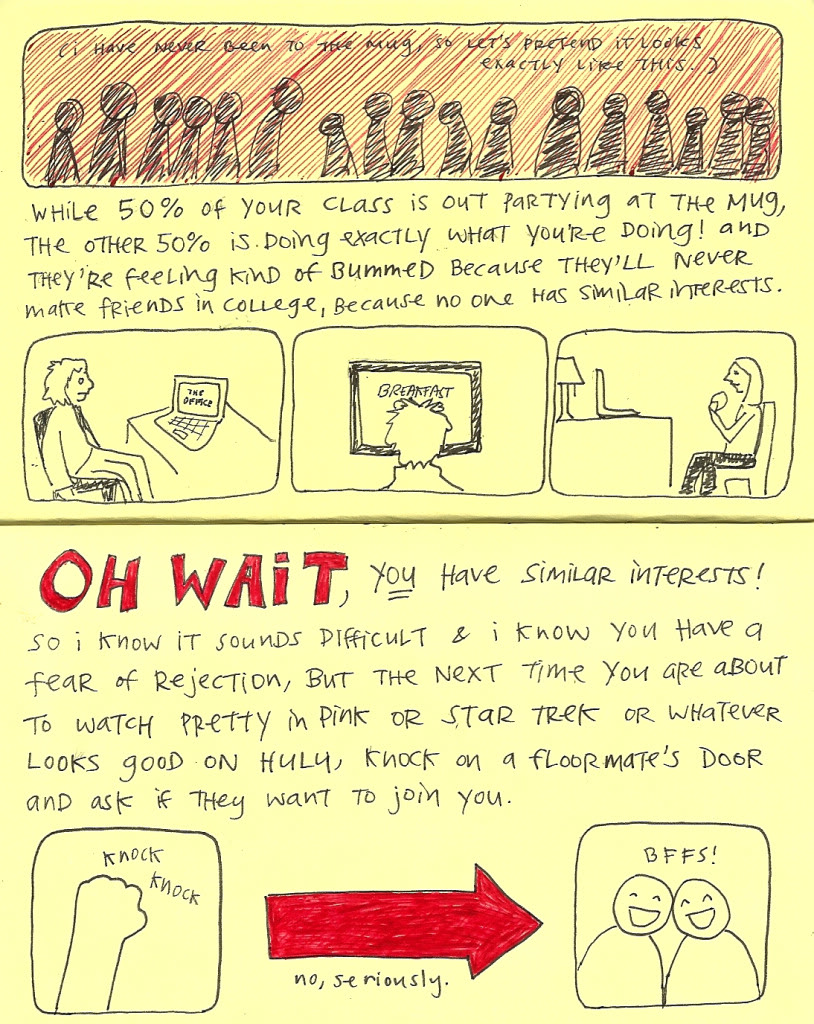 (i HAVE NEVER BEEN TO THE MUG, SO LET'S PRETEND IT LOOKS
EXACTLY LIKE THIS.)
WHILE 50% OF YOUR CLASS IS OUT PARTYING AT THE MUG,
THE OTHER 50% IS DOING EXACTLY WHAT YOU'RE DOING! AND
THEY'RE FEELING KIND OF BUMMED BECAUSE THEY'LL NEVER
MAKE FRIENDS IN COLLEGE, BECAUSE NO ONE HAS SIMILAR INTERESTS.
THE
OFFICE
BREAKFAST
OH WAIT, YOU HAVE SIMILAR INTERESTS!
SO i KNOW IT SOUNDS DIFFICULT & i KNOW YOU HAVE A
FEAR OF REJECTION, BUT THE NEXT TIME YOU ARE ABOUT
TO WATCH PRETTY IN PINK OR STAR TREK OR WHATEVER
LOOKS GOOD ON HULU, KNOCK ON A FLOORMATE'S DOOR
AND ASK IF THEY WANT TO JOIN YOU.
KNOCK
KNOCK
BFFS!
no, seriously.